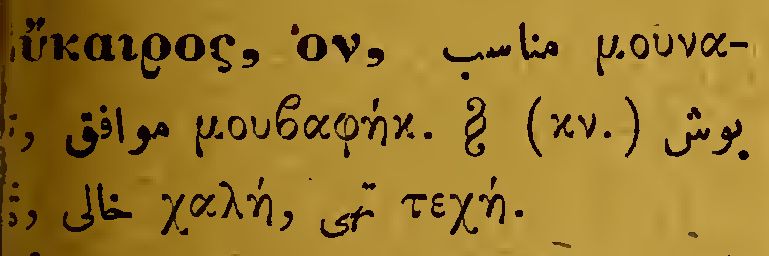 ὔκαιρος, ον, مناسب μουνα-
, موافق μουβαφήκ. (κν.) بوش
, خالى χαλή, تهى τεχή.